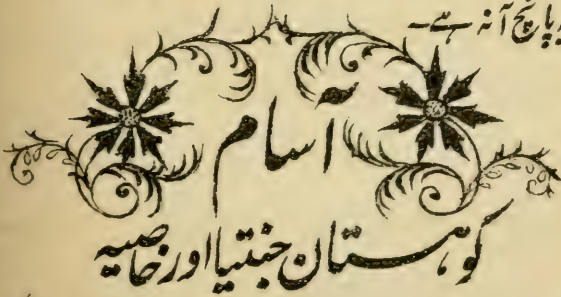 پانچ آنہ ہے۔
آسام
کوہستان جنتیا اور خاصیہ